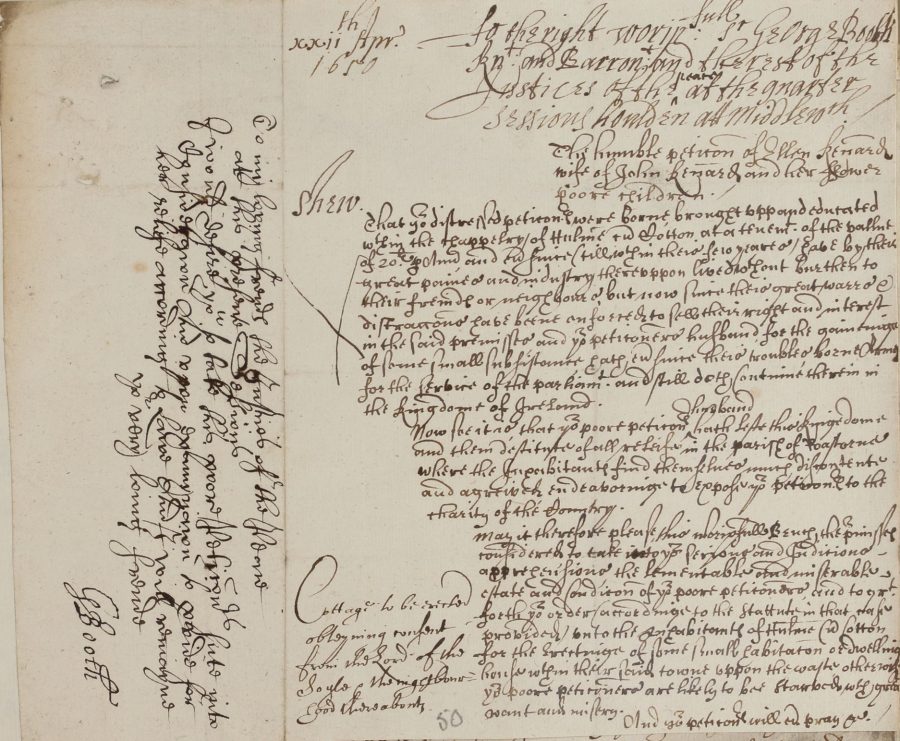 xxiith Apr.
1650
To the right worpfull Sr George Booth
Knt and Barront and the rest of the
Justices of the peace at the quarter
sessions houlden att Middlewch
The humble peticon of Ellen Kenerd
wife of John Kenerd and her flower
poore children.
Shew.
That yor distressed peticonrs were borne brought upp and educated
wthin the Chappelry of Hulme in at a tenemt. of the vallue
of 20s p and since still wthin theis few yeares have by their
great paines and industry thereuppon lived wthout burthen to
their freinds or neighbours but now since theis great warrs &
distractions have beene enforced to sell their right and interest
in the said premisses and yor petitioners husband for the gaininge
of some small subsistance hath since theis troubles borne Armes
for the service of the parliamt. and still doth continue therein in
the Kingdome of Ireland.
Now see it is that yor poore peticonrs husband hath lefte this Kingdome
and them destitute of all releife in the parish of Rostorne
where the Inhabitants find themselves much discontente
and agreived endeavoringe to expose yor peticonrs to the
charity of the Country.
May it therefore please this worpfull Bench the pmisses
considered to take into yor serious and Juditious
apprehensions the lamentable and miserable
estate and condicon of yor poore peticoners and to grt
foorth yor order accordinge to the Statute in that case
provided unto the Inhabitants of Hulme
for the erectinge of some small habitacon or dwellinge
house wthin their said towne uppon the waste otherwise
yor poore petitioners are likely to bee starved wth great
want and misery.
And yor peticonrs will ev pray &c.
Cottage to be erected
obteyning consent
from the Lord of the
Soyle & the neighbour-
hood thereabouts.
50
To my loving frends the Justices of the Peace
att this present Sessions
I would desire you to take this poore Petition into
Consideration and upon to provide for
her releife accordingly & I rest and remayne
yor very loving freind
G Booth